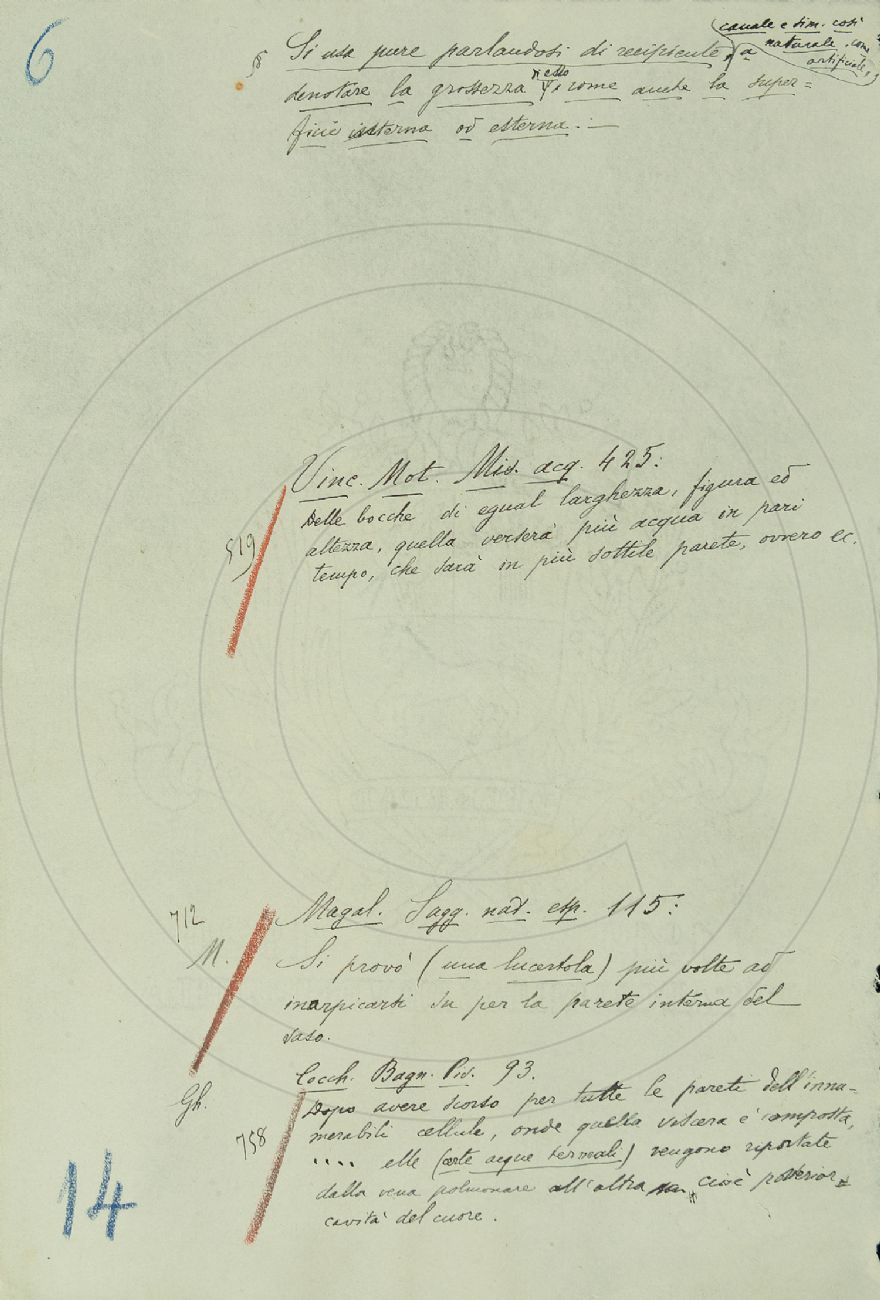 6
§ Si usa pure parlandosi di recipiente, canale e sim. così
a naturale, come
artificiale,
denotare la grossezza d'esso come anche la super=
ficie interna od esterna. —
Vinc. Mot. Mis. acq. 425:
Delle bocche di egual larghezza, figura ed
519
altezza, quella verserà più acqua in pari
tempo, che sarà in più sottile parete, ovvero ec.
712
Magal. Sagg. nat. esp. 115:
M.
Si provò (una lucertola) più volte ad
inarpicarsi su per la parete interna del
vaso.
Cocch. Bagn. Pis. 93.
Gh.
Dopo avere scorso per tutte le pareti dell'innu=
758
merabili cellule, onde quella viscera è composta,
.... elle (certe acque termali) vengono riportate
dalla vena polmonare all'altra cioè posterior
cavità del cuore.
14